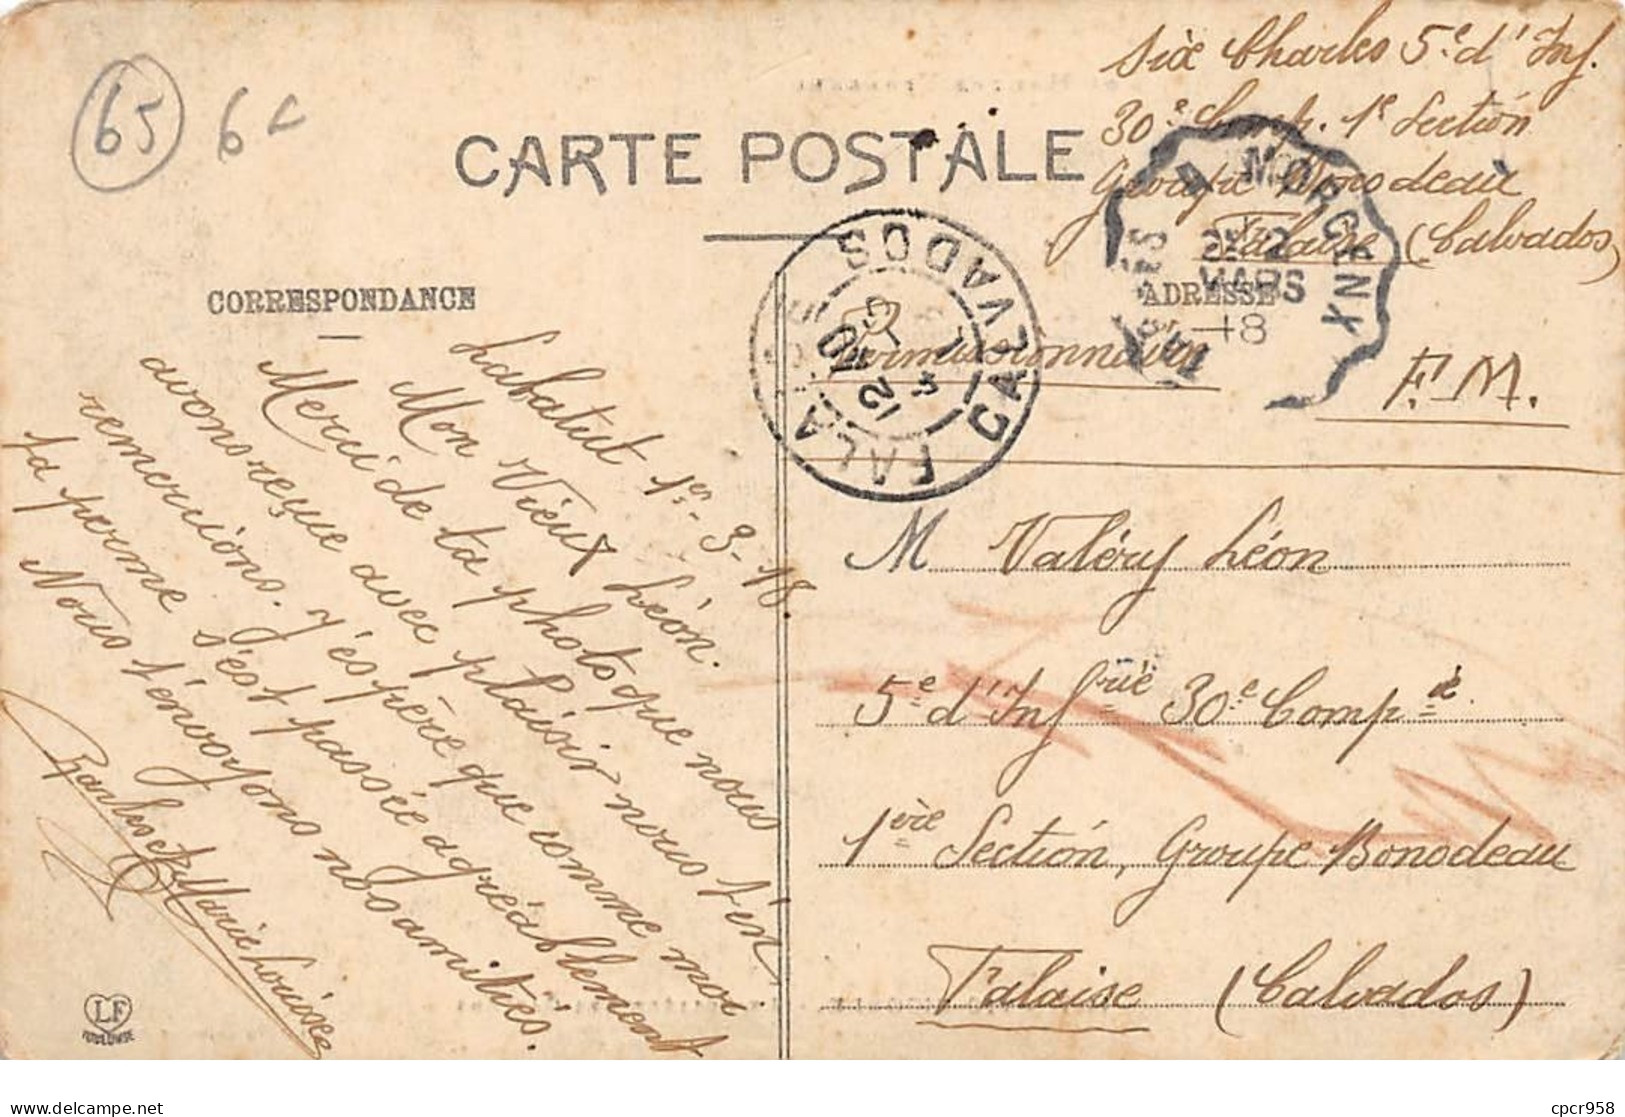 65 6
CARTE POSTALE
Six Charles 5.e d'Inf.
30e Comp. 1e Section
Groupe Bonodeau
Falaise (Calvados)
CORRESPONDANCE
ADRESSE
Permissionnaire
F.M.
FALAISE CALVADOS
MORCENX
MARS
18
Labatut 1er-3-18.
Mon Vieux Léon.
Merci de ta photo que nous
avons reçue avec plaisir nous t'en
remercions. J'éspère que comme moi
ta perme s'est passée agréablement
Nous t'envoyons nos amitiés.
Charles et Marie Louise
M Valéry Léon
5e d'Infrie 30e Compie
1ère Section, Groupe Bonodeau
Falaise (Calvados)
LF
TOULOUSE
cpcr958